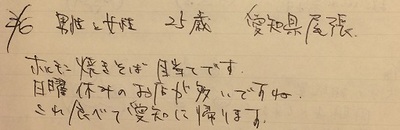 3/6 男性と女性 25歳 愛知県尾張
ホルモン焼きそば目当てです。
日曜休みのお店が多いですね。
これ食べて愛知に帰ります。